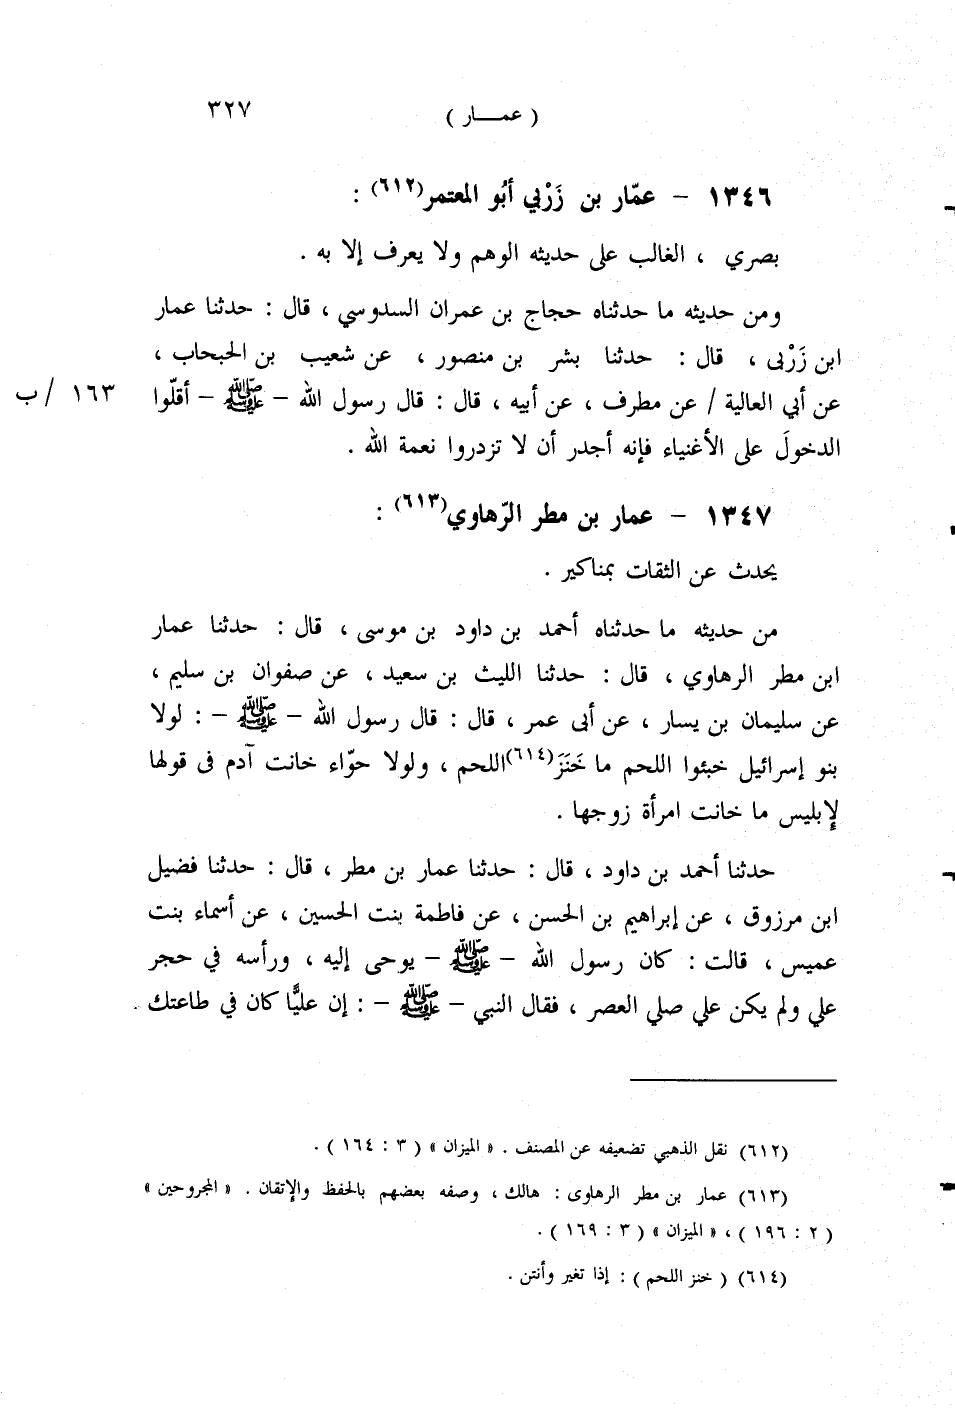 ( عمـــار )
٣٢٧
١٣٤٦ – عمّار بن زَرْبي أبُو المعتمر(٦١٢) :
بصري ، الغالب على حديثه الوهم ولا يعرف إلا به .
ومن حديثه ما حدثناه حجاج بن عمران السدوسي ، قال : حدثنا عمار
ابن زَرْبى ، قال : حدثنا بشر بن منصور ، عن شعيب بن الحبحاب ،
عن أبي العالية / عن مطرف ، عن أبيه ، قال : قال رسول الله – ﷺ – أقلّوا
١٦٣ / ب
الدخولَ على الأغنياء فإنه أجدر أن لا تزدروا نعمة الله .
١٣٤٧ – عمار بن مطر الرّهاوي(٦١٣) :
يحدث عن الثقات بمناكير .
من حديثه ما حدثناه أحمد بن داود بن موسى ، قال : حدثنا عمار
ابن مطر الرهاوي ، قال : حدثنا الليث بن سعيد ، عن صفوان بن سليم ،
عن سليمان بن يسار ، عن أبى عمر ، قال : قال رسول الله – ﷺ – : لولا
بنو إسرائيل خبئوا اللحم ما خَنَزَ(٦١٤)اللحم ، ولولا حوّاء خانت آدم فى قولها
لإبليس ما خانت امرأة زوجها .
حدثنا أحمد بن داود ، قال : حدثنا عمار بن مطر ، قال : حدثنا فضيل
ابن مرزوق ، عن إبراهيم بن الحسن ، عن فاطمة بنت الحسين ، عن أسماء بنت
عميس ، قالت : كان رسول الله – ﷺ – يوحى إليه ، ورأسه في حجر
علي ولم يكن علي صلي العصر ، فقال النبي – ﷺ – : إن عليًّا كان في طاعتك .
(٦١٢) نقل الذهبي تضعيفه عن المصنف . « الميزان » ( ٣ : ١٦٤ ) .
(٦١٣) عمار بن مطر الرهاوى : هالك ، وصفه بعضهم بالحفظ والإتقان . « المجروحين »
( ٢ : ١٩٦ ) ، « الميزان » ( ٣ : ١٦٩ ) .
(٦١٤) ( خنز اللحم ) : إذا تغير وأنتن .